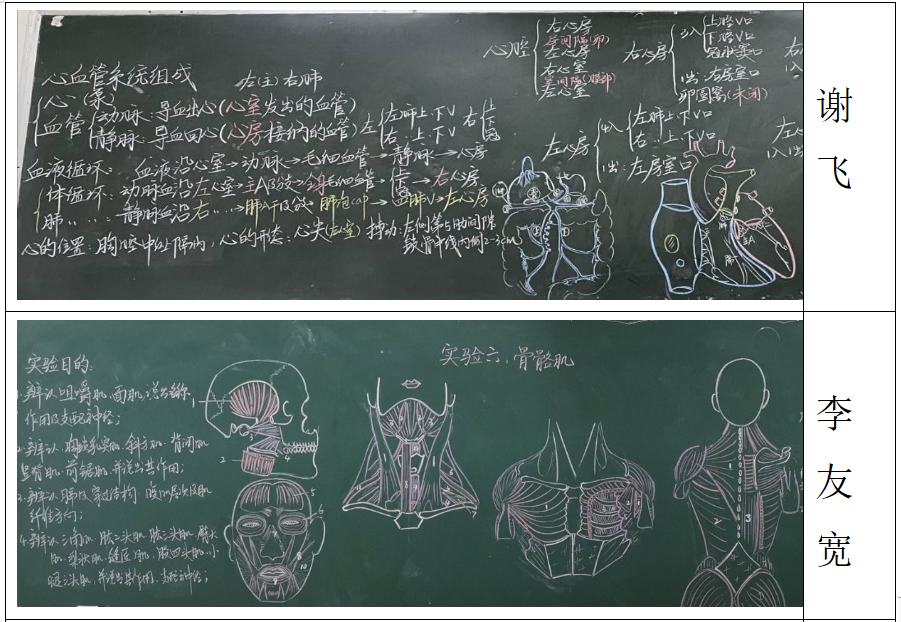 心血管系统组成
左(主)右肺
心(泵)
血管
动脉:导血出心(心室发出的血管)
静脉:导血回心(心房接纳的血管)
左
左肺上.下V
右..上.下V
右
上
下
冠
血液循环: 血液沿心室→动脉→毛细血管→静脉→心房
体循环:动脉血沿左心室→主A及分支→全身毛细血管→
上
下
冠
→右心房
肺‥‥:静脉血沿右‥‥→肺A干及分支→肺泡cap→肺V→左心房
心的位置:胸腔中纵隔内,心的形态:心尖(左室)
搏动:左侧第5肋间隙
锁骨中线内侧2-3cm
心腔
右心房
房间隔(卵)
左心房
右心室
室间隔(膜部)
左心室
右心房
入
上腔V口
下腔V口
冠状窦口
出:右房室口
卵圆窝(未闭)
右
入
左心房
入
左肺上.下V口
右..上.下V口
出:左房室口
左心
入
出
谢飞
实验六、骨骼肌
实验目的:
1.辨认咀嚼肌、面肌,说出名称、
作用及支配神经;
2.辨认胸锁乳突肌、斜方肌、背阔肌
竖脊肌、前锯肌,并说出其作用;
3.辨认
纤维方向;
4.辨认三角肌、肱二头肌、肱三头肌、臀大
肌、梨状肌、缝匠肌、股四头肌、小
腿三头肌,并说出其作用、支配神经;
1
2
3
5
6
8
9
10
李友宽